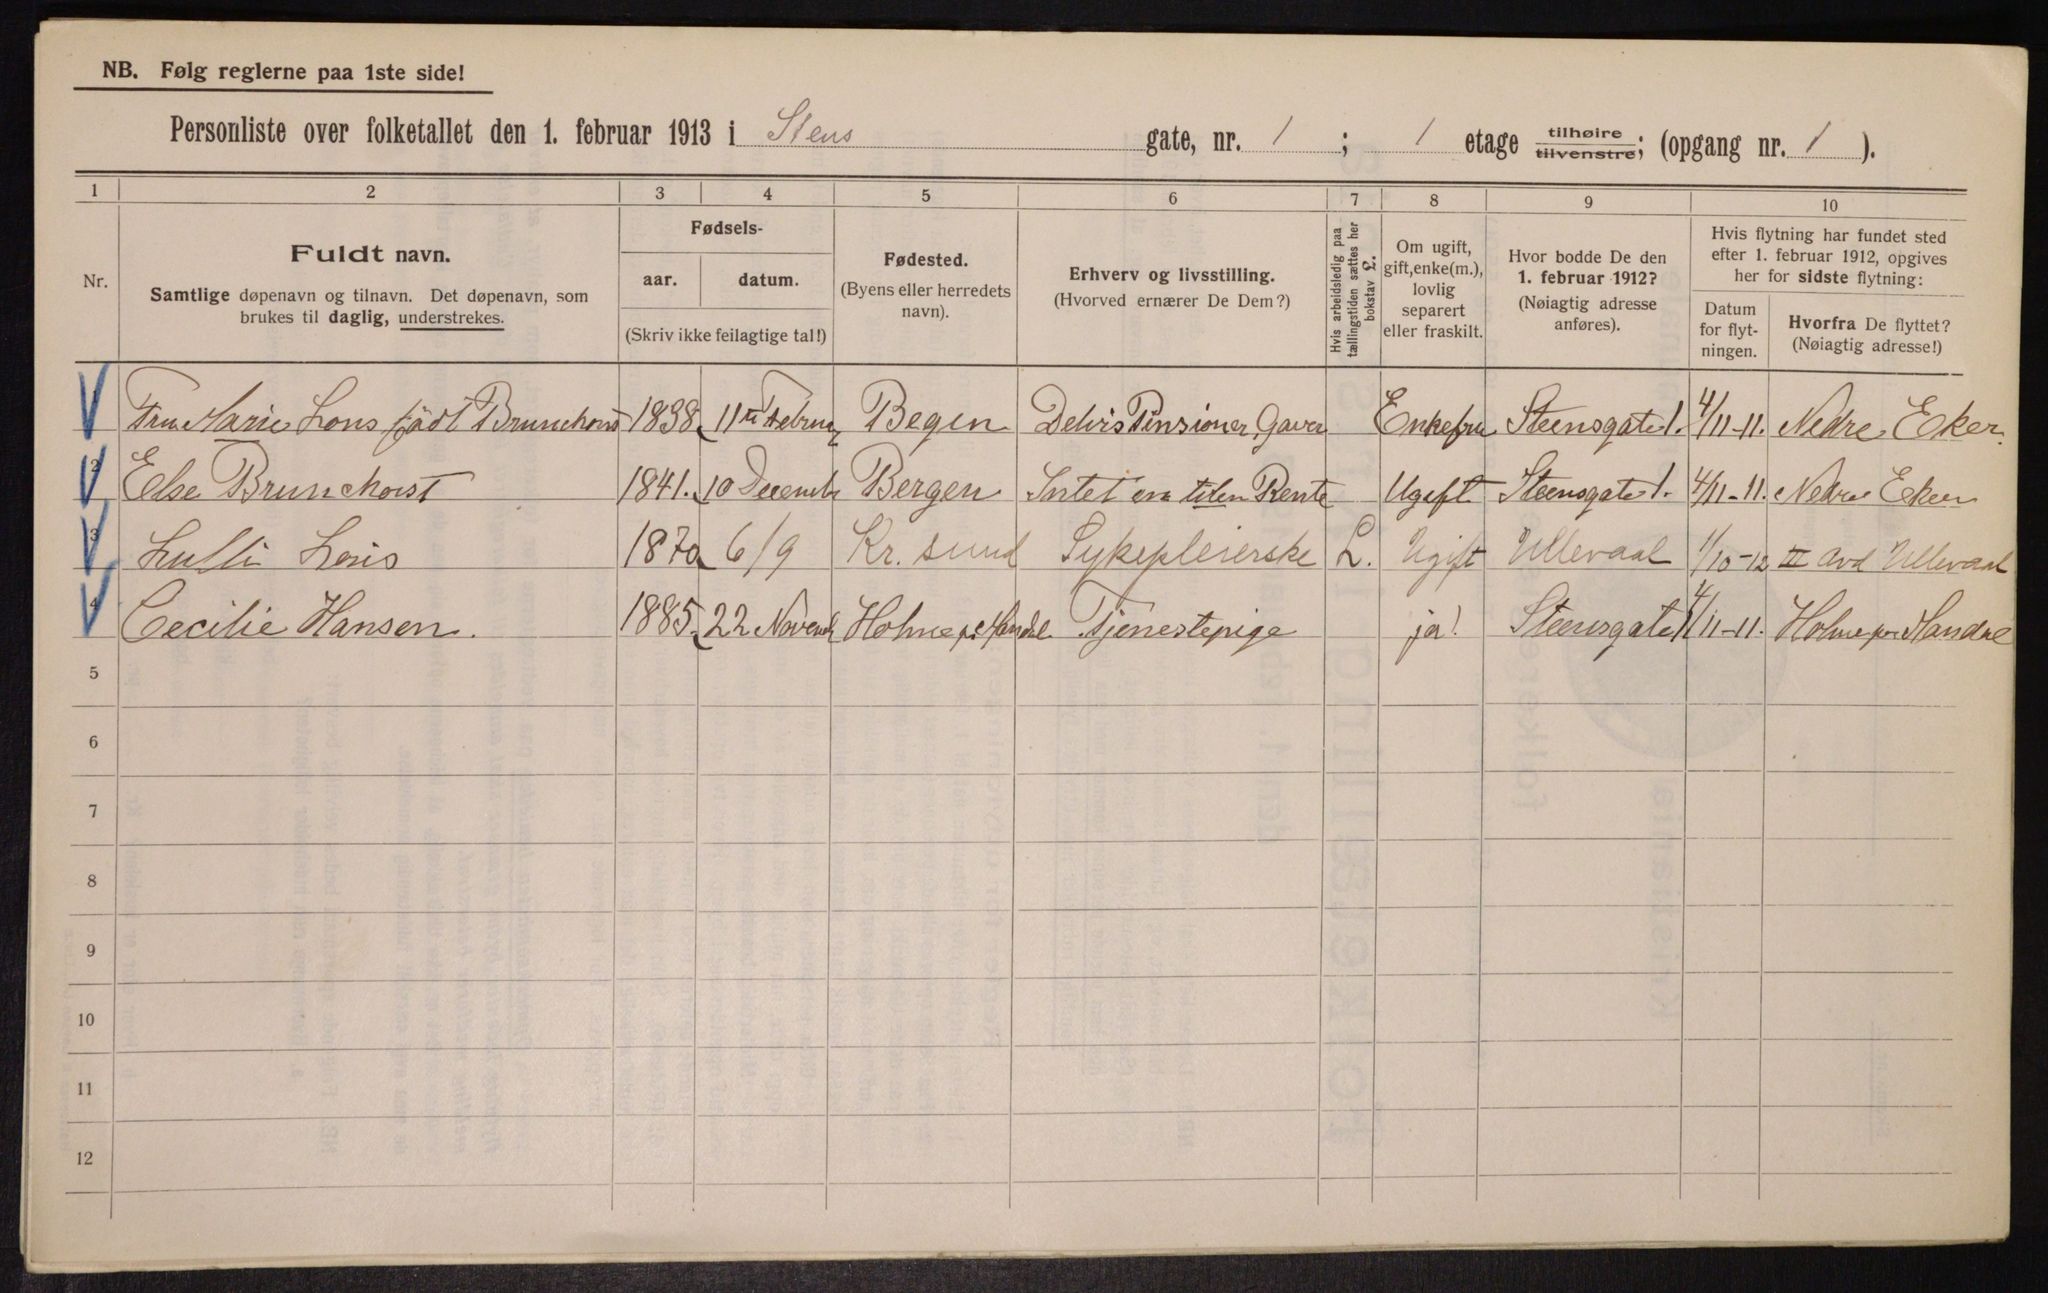 NB. Følg reglerne paa 1ste side!
Personliste over folketallet den 1. februar 1913 i Stens gate, nr. 1 ; 1 etage tilhøire tilvenstre; (opgang nr. 1 ).
1 2 3 4 5 6 7 8 9 10
Nr.
Fuldt navn.
Samtlige døpenavn og tilnavn. Det døpenavn, som
brukes til daglig, understrekes.
Fødsels-
aar. datum.
(Skriv ikke feilagtige tal!)
Fødested.
(Byens eller herredets
navn).
Erhverv og livsstilling.
(Hvorved ernærer De Dem?)
Hvis arbeidsledig paa
tællingstiden sættes her
bokstav L.
Om ugift,
gift, enke(m.),
lovlig
separert
eller fraskilt.
Hvor bodde De den
1. februar 1912?
(Nøiagtig adresse
anføres).
Hvis flytning har fundet sted
efter 1. februar 1912, opgives
her for sidste flytning:
Datum
for flyt-
ningen.
Hvorfra De flyttet?
(Nøiagtig adresse!)
Fru Marie Lous födt Brunchorst 1838 11te Februar Begen Delvis Pensioner Gaver Enkefru Steensgate 1. 4/11-11. Nedre Eker.
2 Else Brunchorst 1841. 10 Decembr Bergen Rente Ugift Steensgate 1. 4/11-11. Nedre Eker
3 Lous 1870 6/9 Kr. sund Sykepleierske L. Ugift Ullevaal 1/10-12 Avd Ullevaal
4 Cecilie Hansen. 1885. 22 Novemb Holme pr Mandal Tjenestepige ja! Steensgate 1 4/11-11. Holme pr Mandal
5
6
7
8
9
10
11
12